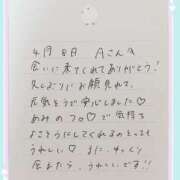 4月8日 Aさんへ
会いに来てくれてありがとう!
久しぶりにお顔見れて、
元気そうで安心しました♡
あみのフロ♡で気持ち
よさそうにしてくれるのとっても
うれしい♡ また、ゆっくり
会えたら、うれしいです!!